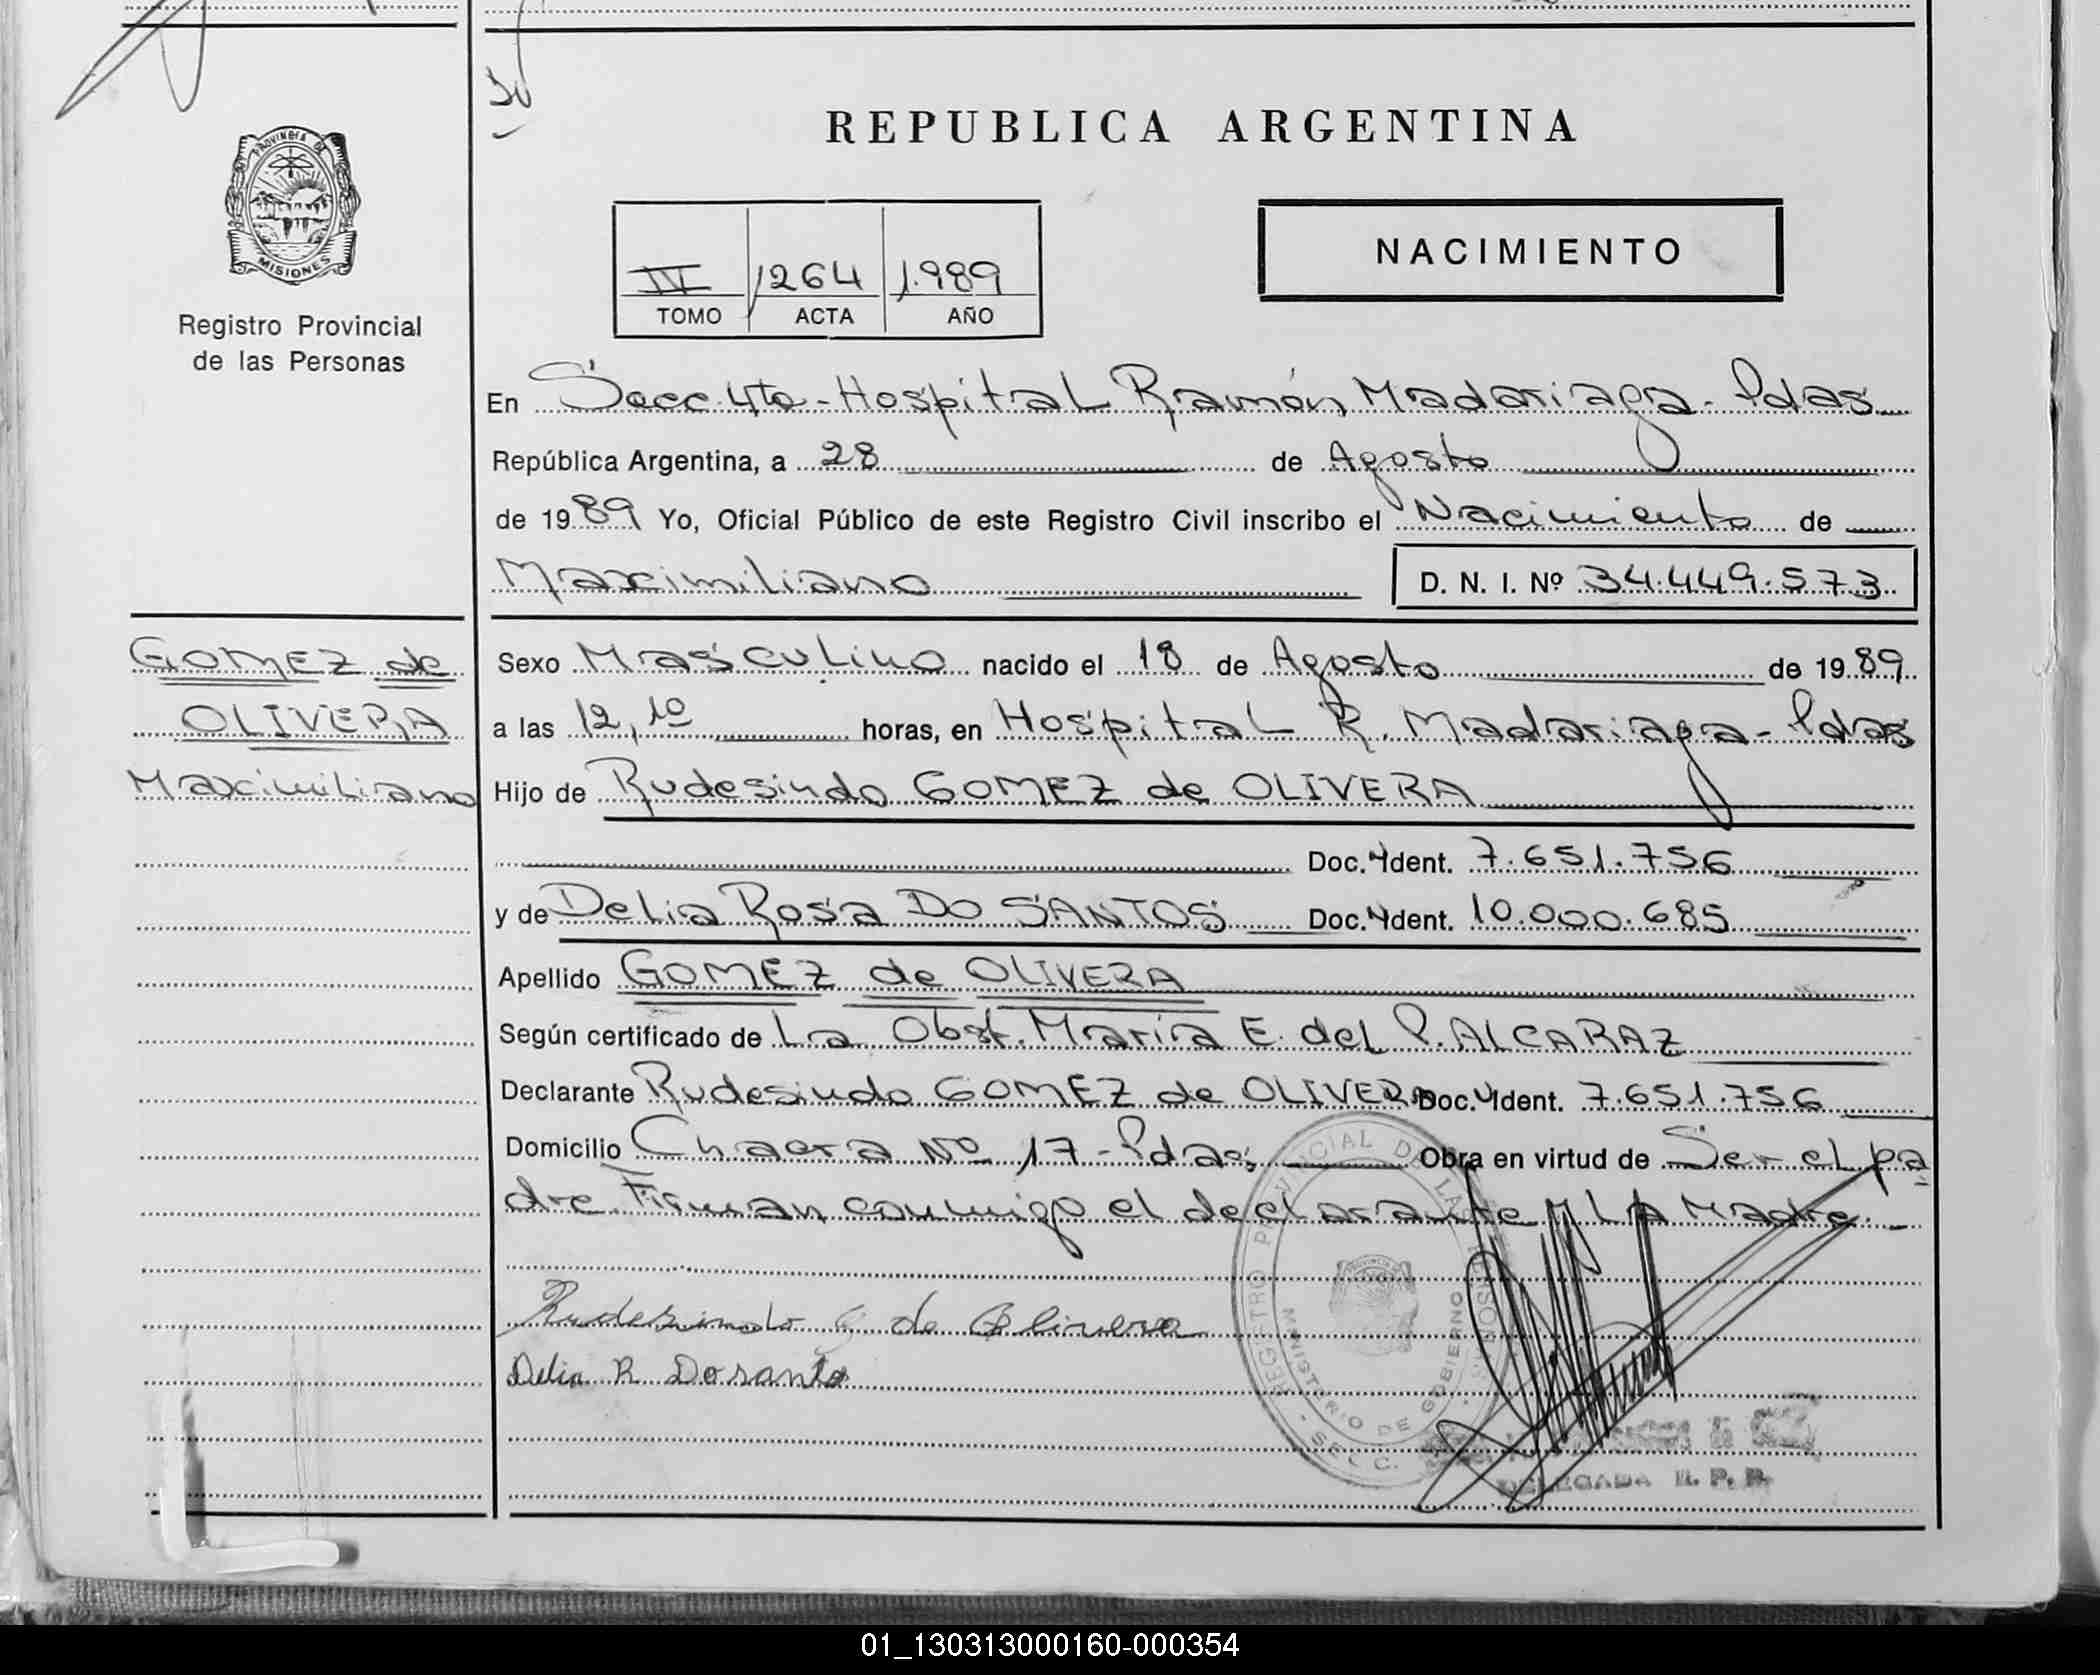 REPUBLICA ARGENTINA
PROVINCIA DE
MISIONES
Registro Provincial
de las Personas
IV 1264 1.989
TOMO ACTA AÑO
NACIMIENTO
En Secc. 4ta - Hospital Ramón Madariaga - Pdas
República Argentina, a 28 de Agosto
de 1989 Yo, Oficial Público de este Registro Civil inscribo el Nacimiento de
Maximiliano D. N. I. Nº 34.449.573
GOMEZ de
OLIVERA
Maximiliano
Sexo Masculino nacido el 18 de Agosto de 1989
a las 12,10 horas, en Hospital R. Madariaga - Pdas
Hijo de Rudesindo GOMEZ de OLIVERA
Doc. Ident. 7.651.756
y de Delia Rosa DO SANTOS Doc. Ident. 10.000.685
Apellido GOMEZ de OLIVERA
Según certificado de La Obst. María E. del P. ALCARAZ
Declarante Rudesindo GOMEZ de OLIVERA Doc. Ident. 7.651.756
Domicilio Chacra Nº 17 - Pdas Obra en virtud de Ser el pa
dre. Firman conmigo el declarante y LA Madre.
Rudesindo G de Olivera
Delia R Dosanto
REGISTRO PROVINCIAL DE LAS
MINISTERIO DE GOBIERNO
SECC.
DELEGADA R. P. P.
01_130313000160-000354